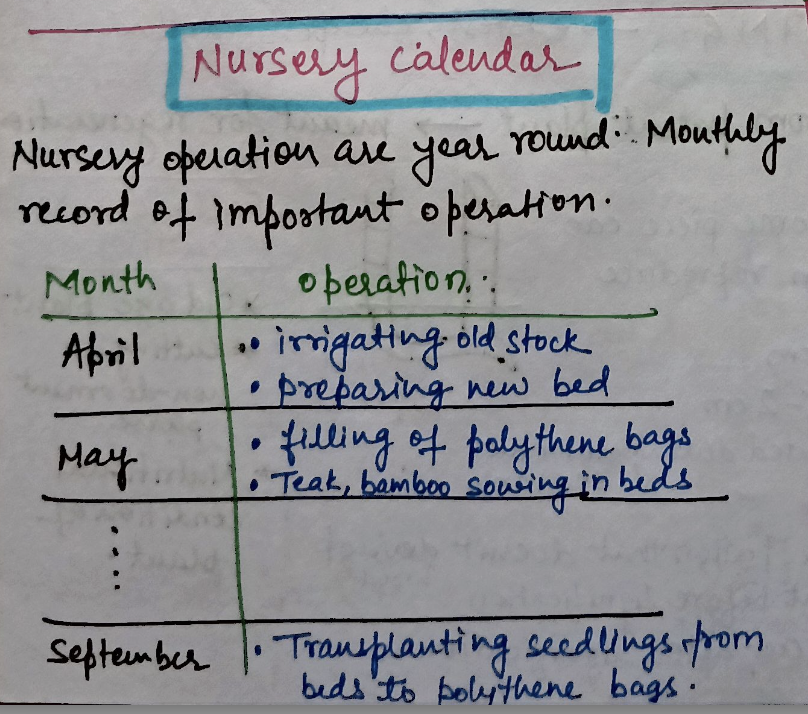 Nursery calendar
Nursery operation are year round. Monthly
record of important operation.
Month operation.
April • irrigating old stock
• preparing new bed
May • filling of polythene bags
• Teak, bamboo sowing in beds
September • Transplanting seedlings from
beds to polythene bags.